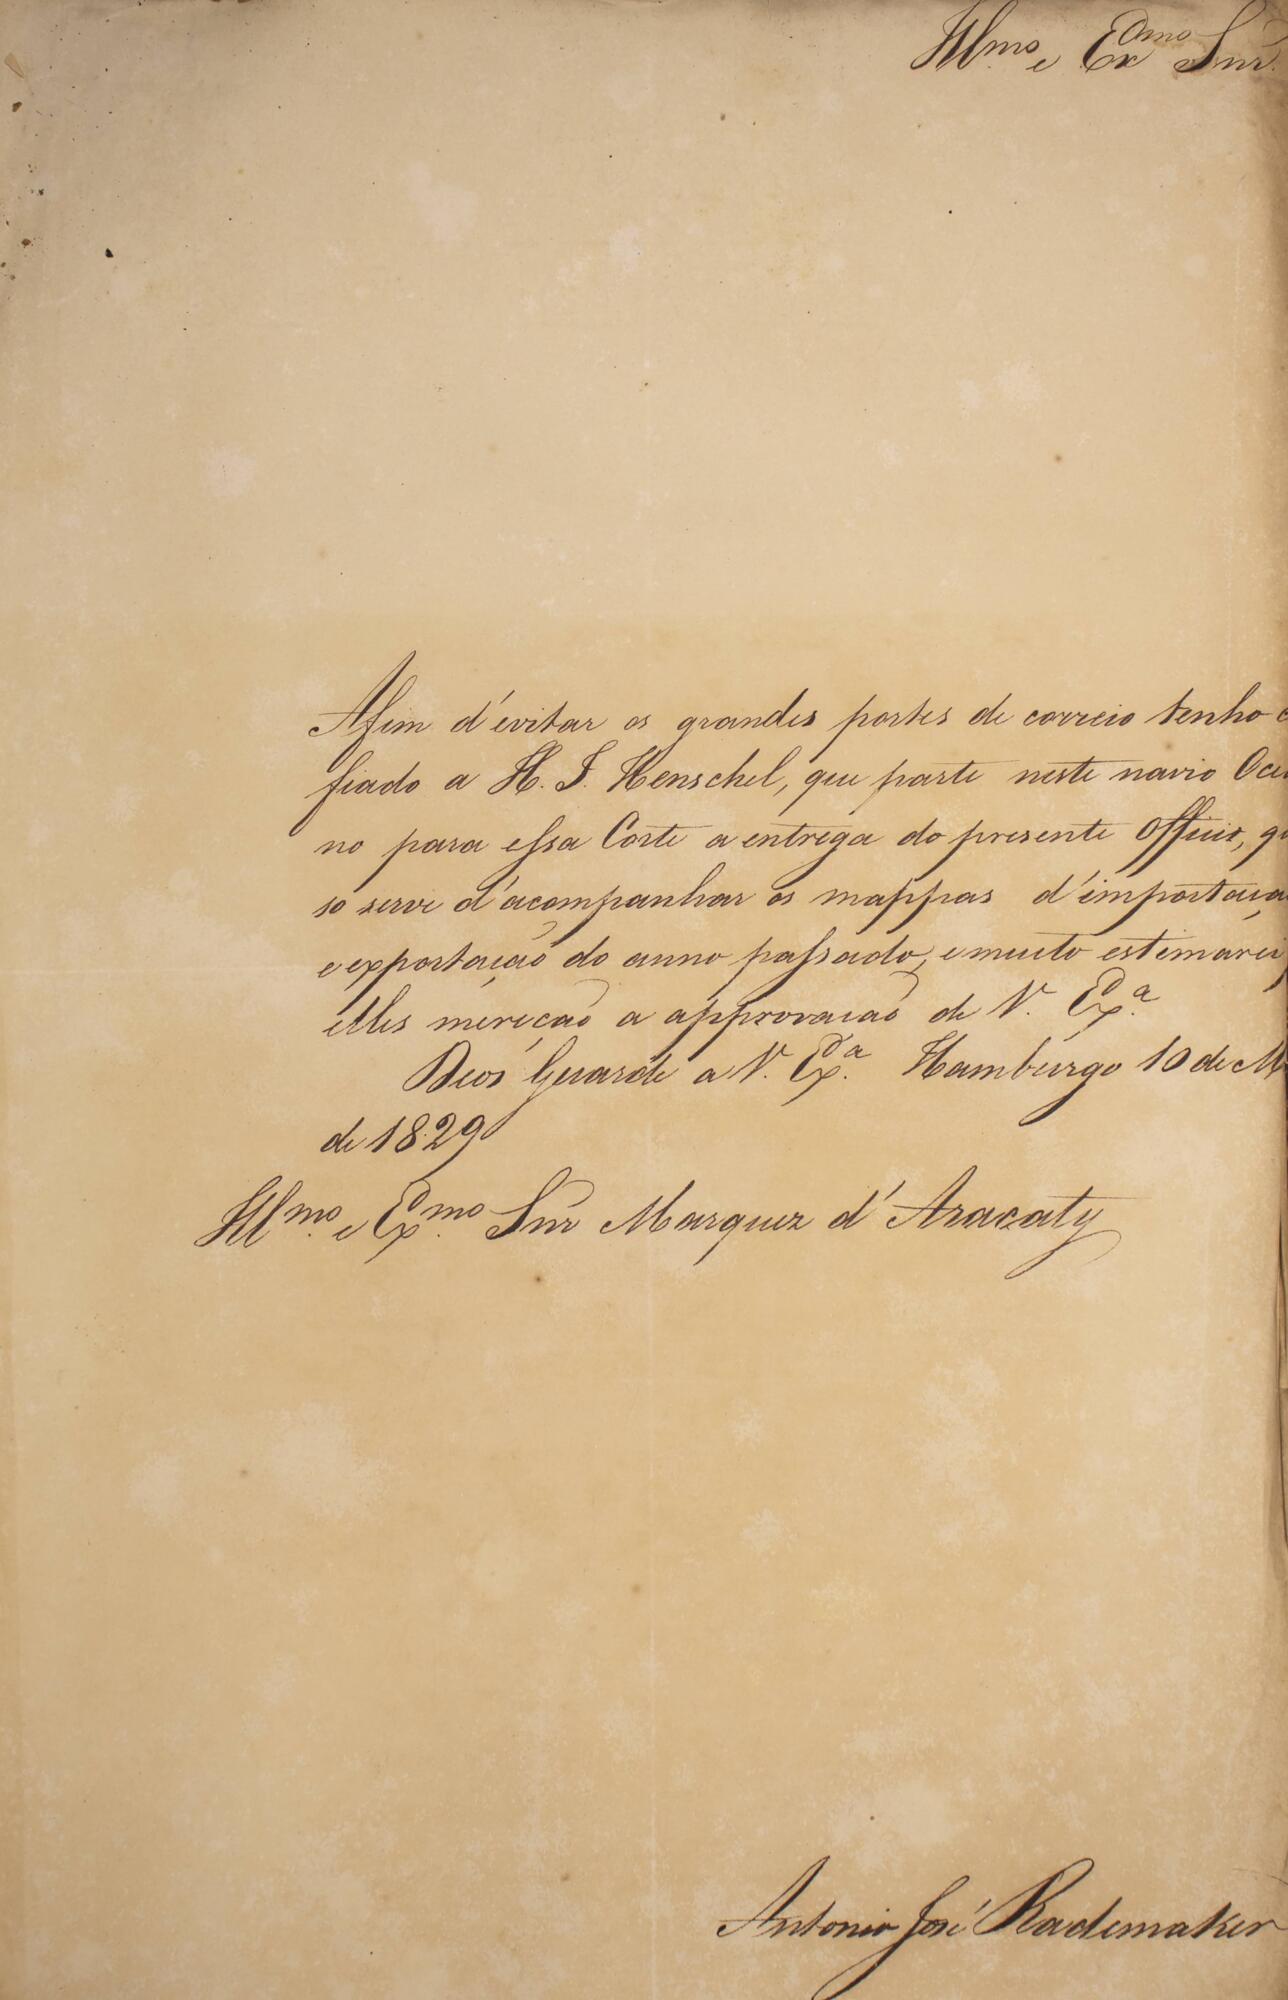 Illmo e Exmo Snr.
Afim d'evitar os grandes portes de correio tenho
fiado a H. J. Henschel, que parte neste navio Oce
no para essa Corte a entrega do presente Officio, q
so serve d'acompanhar os mappas d'importaça
e exportação do anno passado, e muito estimarei
elles mereção a approvação de V. Exa.
Deos Guarde a V. Exa. Hamburgo 10 de M
de 1829
Illmo. e Exmo. Snr Marquez d'Aracaty
Antonio José Rademaker